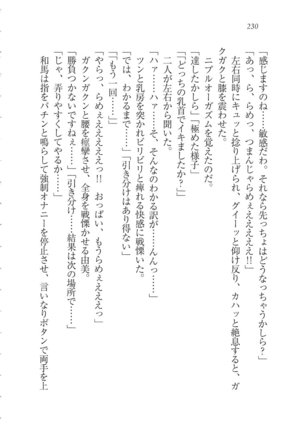 230
「感じますのね……敏感だわ。それなら先っちょはどうなっちゃうかしら?」
「あっ、ら、らめっ、つまんじゃらめぇえぇぇえ!!」
左右同時にキュッと捻り上げられ、グイーッと仰け反り、カハッと絶息すると、ガ
クガクと膝を震わせた。
ニプルオーガズムを覚えたのだ。
「達したかしら」「極めた様子」
「どっちの乳首でイキましたか?」
二人が左右から問う。
「ハァーッ、ハァーッ、そ、そんなのわかる訳が……んんっ……」
ツンと乳房を突かれビリビリと痺れる快感に戦慄いた。
「では、わかるまで……」「引き分けはあり得ない」
「もう一回……」
「やらっ、らめぇえぇえぇっ!! おっぱい、もうらめぇえぇえっ」
ガクンガクンと腰を痙攣させ、全身を戦慄かせる由美。
「勝負つかないですねぇ……」「引き分け……結果は次の場所で……」
「じゃ、弄りやすくしてやるか……」
和馬は指をパチンと鳴らして強制オナニーを停止させ、言いなりボタンで両手を上